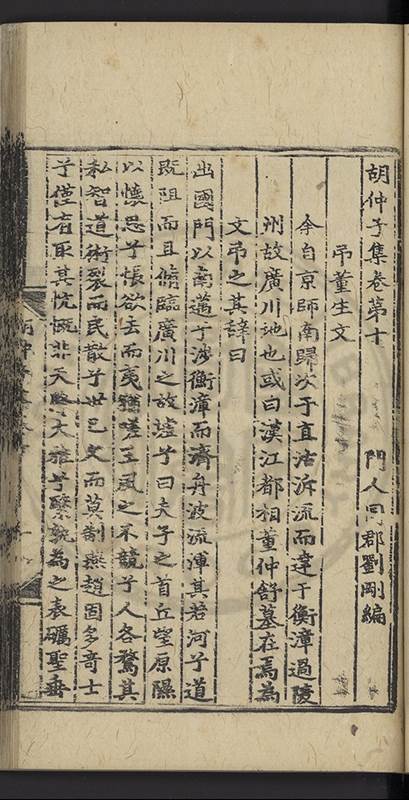 胡仲子集卷第十
門人同郡劉剛編
弔董生文
余自京師南歸次于直沽泝流而達于衡漳過陵
州故廣川地也或曰漢江都相董仲舒墓在焉為
文弔之其辭曰
出國門以南邁兮涉衡漳而濟舟波流渾其若河兮道
既阻而且脩臨廣川之故墟兮曰夫子之首丘望原隰
以懷思兮悵欲去而夷猶嗟王風之不競兮人各騖其
私智道術裂而民散兮世已文而莫制燕趙固多奇士
兮僅有取其忼慨非天啓大雅兮繄孰為之表礪聖垂